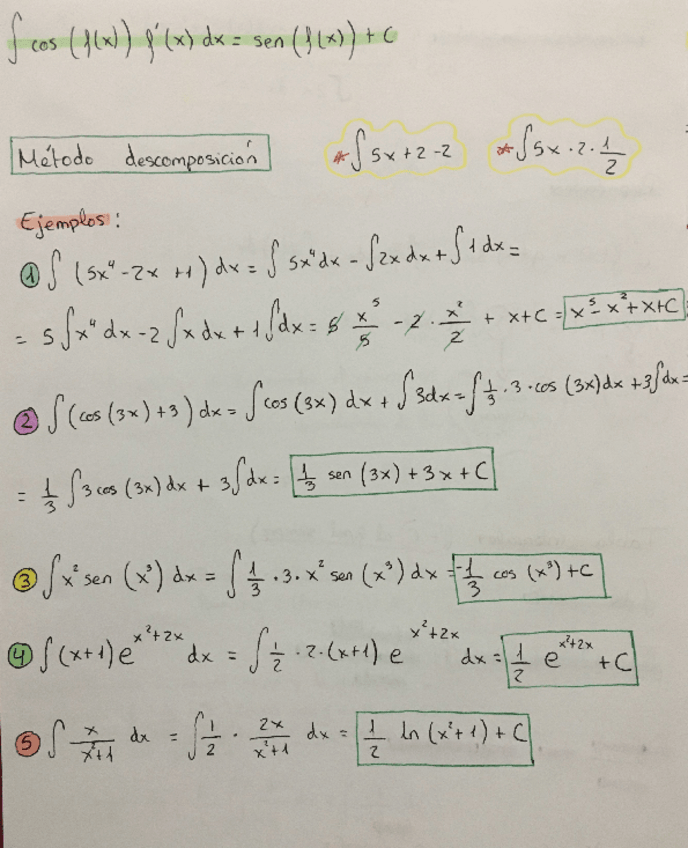 ∫ cos (f(x)) f'(x) dx = sen (f(x)) + C
Método descomposición
* ∫ 5x + 2 - 2
* ∫ 5x · 2 · 1/2
Ejemplos:
① ∫ (5x⁴ - 2x + 1) dx = ∫ 5x⁴ dx - ∫ 2x dx + ∫ 1 dx =
= 5 ∫ x⁴ dx - 2 ∫ x dx + 1 ∫ dx = 5 x⁵/5 - 2 · x²/2 + x + C = x⁵ - x² + x + C
② ∫ (cos (3x) + 3) dx = ∫ cos (3x) dx + ∫ 3 dx = ∫ 1/3 · 3 · cos (3x) dx + 3 ∫ dx =
= 1/3 ∫ 3 cos (3x) dx + 3 ∫ dx = 1/3 sen (3x) + 3x + C
③ ∫ x² sen (x³) dx = ∫ 1/3 · 3 · x² sen (x³) dx = -1/3 cos (x³) + C
④ ∫ (x+1) e^(x²+2x) dx = ∫ 1/2 · 2 · (x+1) e^(x²+2x) dx = 1/2 e^(x²+2x) + C
⑤ ∫ x/(x²+1) dx = ∫ 1/2 · 2x/(x²+1) dx = 1/2 ln (x²+1) + C